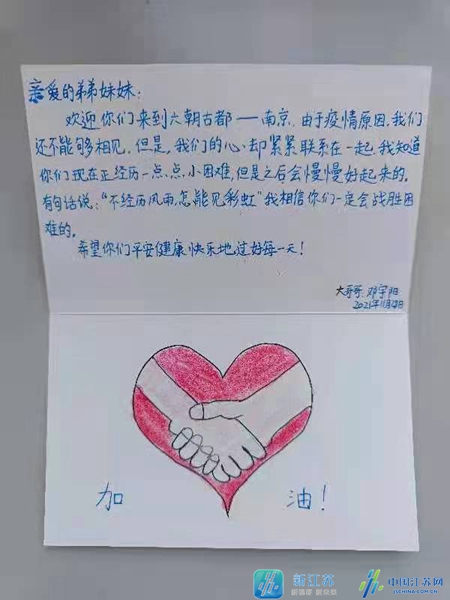 亲爱的弟弟妹妹:
欢迎你们来到六朝古都——南京,由于疫情原因,我们
还不能够相见,但是,我们的心却紧紧联系在一起.我知道
你们现在正经历一点点小困难,但是之后会慢慢好起来的。
有句话说:“不经历风雨,怎能见彩虹”我相信你们一定会战胜困
难的。
希望你们平安健康快乐地过好每一天!
大哥哥:邓宇阳
加 油!
新江苏
中国江苏网
JSCHINA.COM.CN